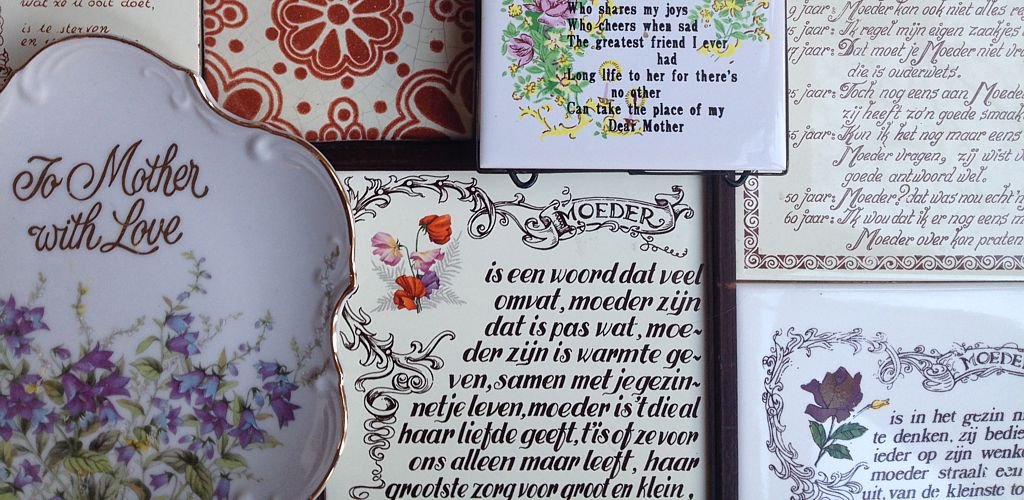 wat ze u ooit doet,
is te sterven
To Mother
with Love
Who shares my joys
Who cheers when sad
The greatest friend I ever
had
Long life to her for there's
no other
Can take the place of my
Dear Mother
MOEDER
is een woord dat veel
omvat, moeder zijn
dat is pas wat, moe~
der zijn is warmte ge~
ven, samen met je gezin~
netje leven, moeder is 't die al
haar liefde geeft, t'is of ze voor
ons alleen maar leeft, haar
grootste zorg voor groot en klein,
Moeder kan ook niet alles
jaar: Ik regel mijn eigen zaakjes
jaar: Dat moet je Moeder niet
die is ouderwets.
jaar: Toch nog eens aan
zij heeft zo'n goede smaak
jaar: Kun ik het nog maar eens
Moeder vragen, zij wist
goede antwoord wel.
50 jaar: Moeder? dat was nou echt
60 jaar: Ik wou dat ik er nog eens
Moeder over kon praten
is in het gezin
te denken, zij
ieder op zijn
moeder straalt
uit, van de kleinste